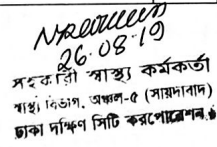 26.08.19
সহকারী স্বাস্থ্য কর্মকর্তা
স্বাস্থ্য বিভাগ, অঞ্চল-৫ (সায়দাবাদ)
ঢাকা দক্ষিণ সিটি করপোরেশন।